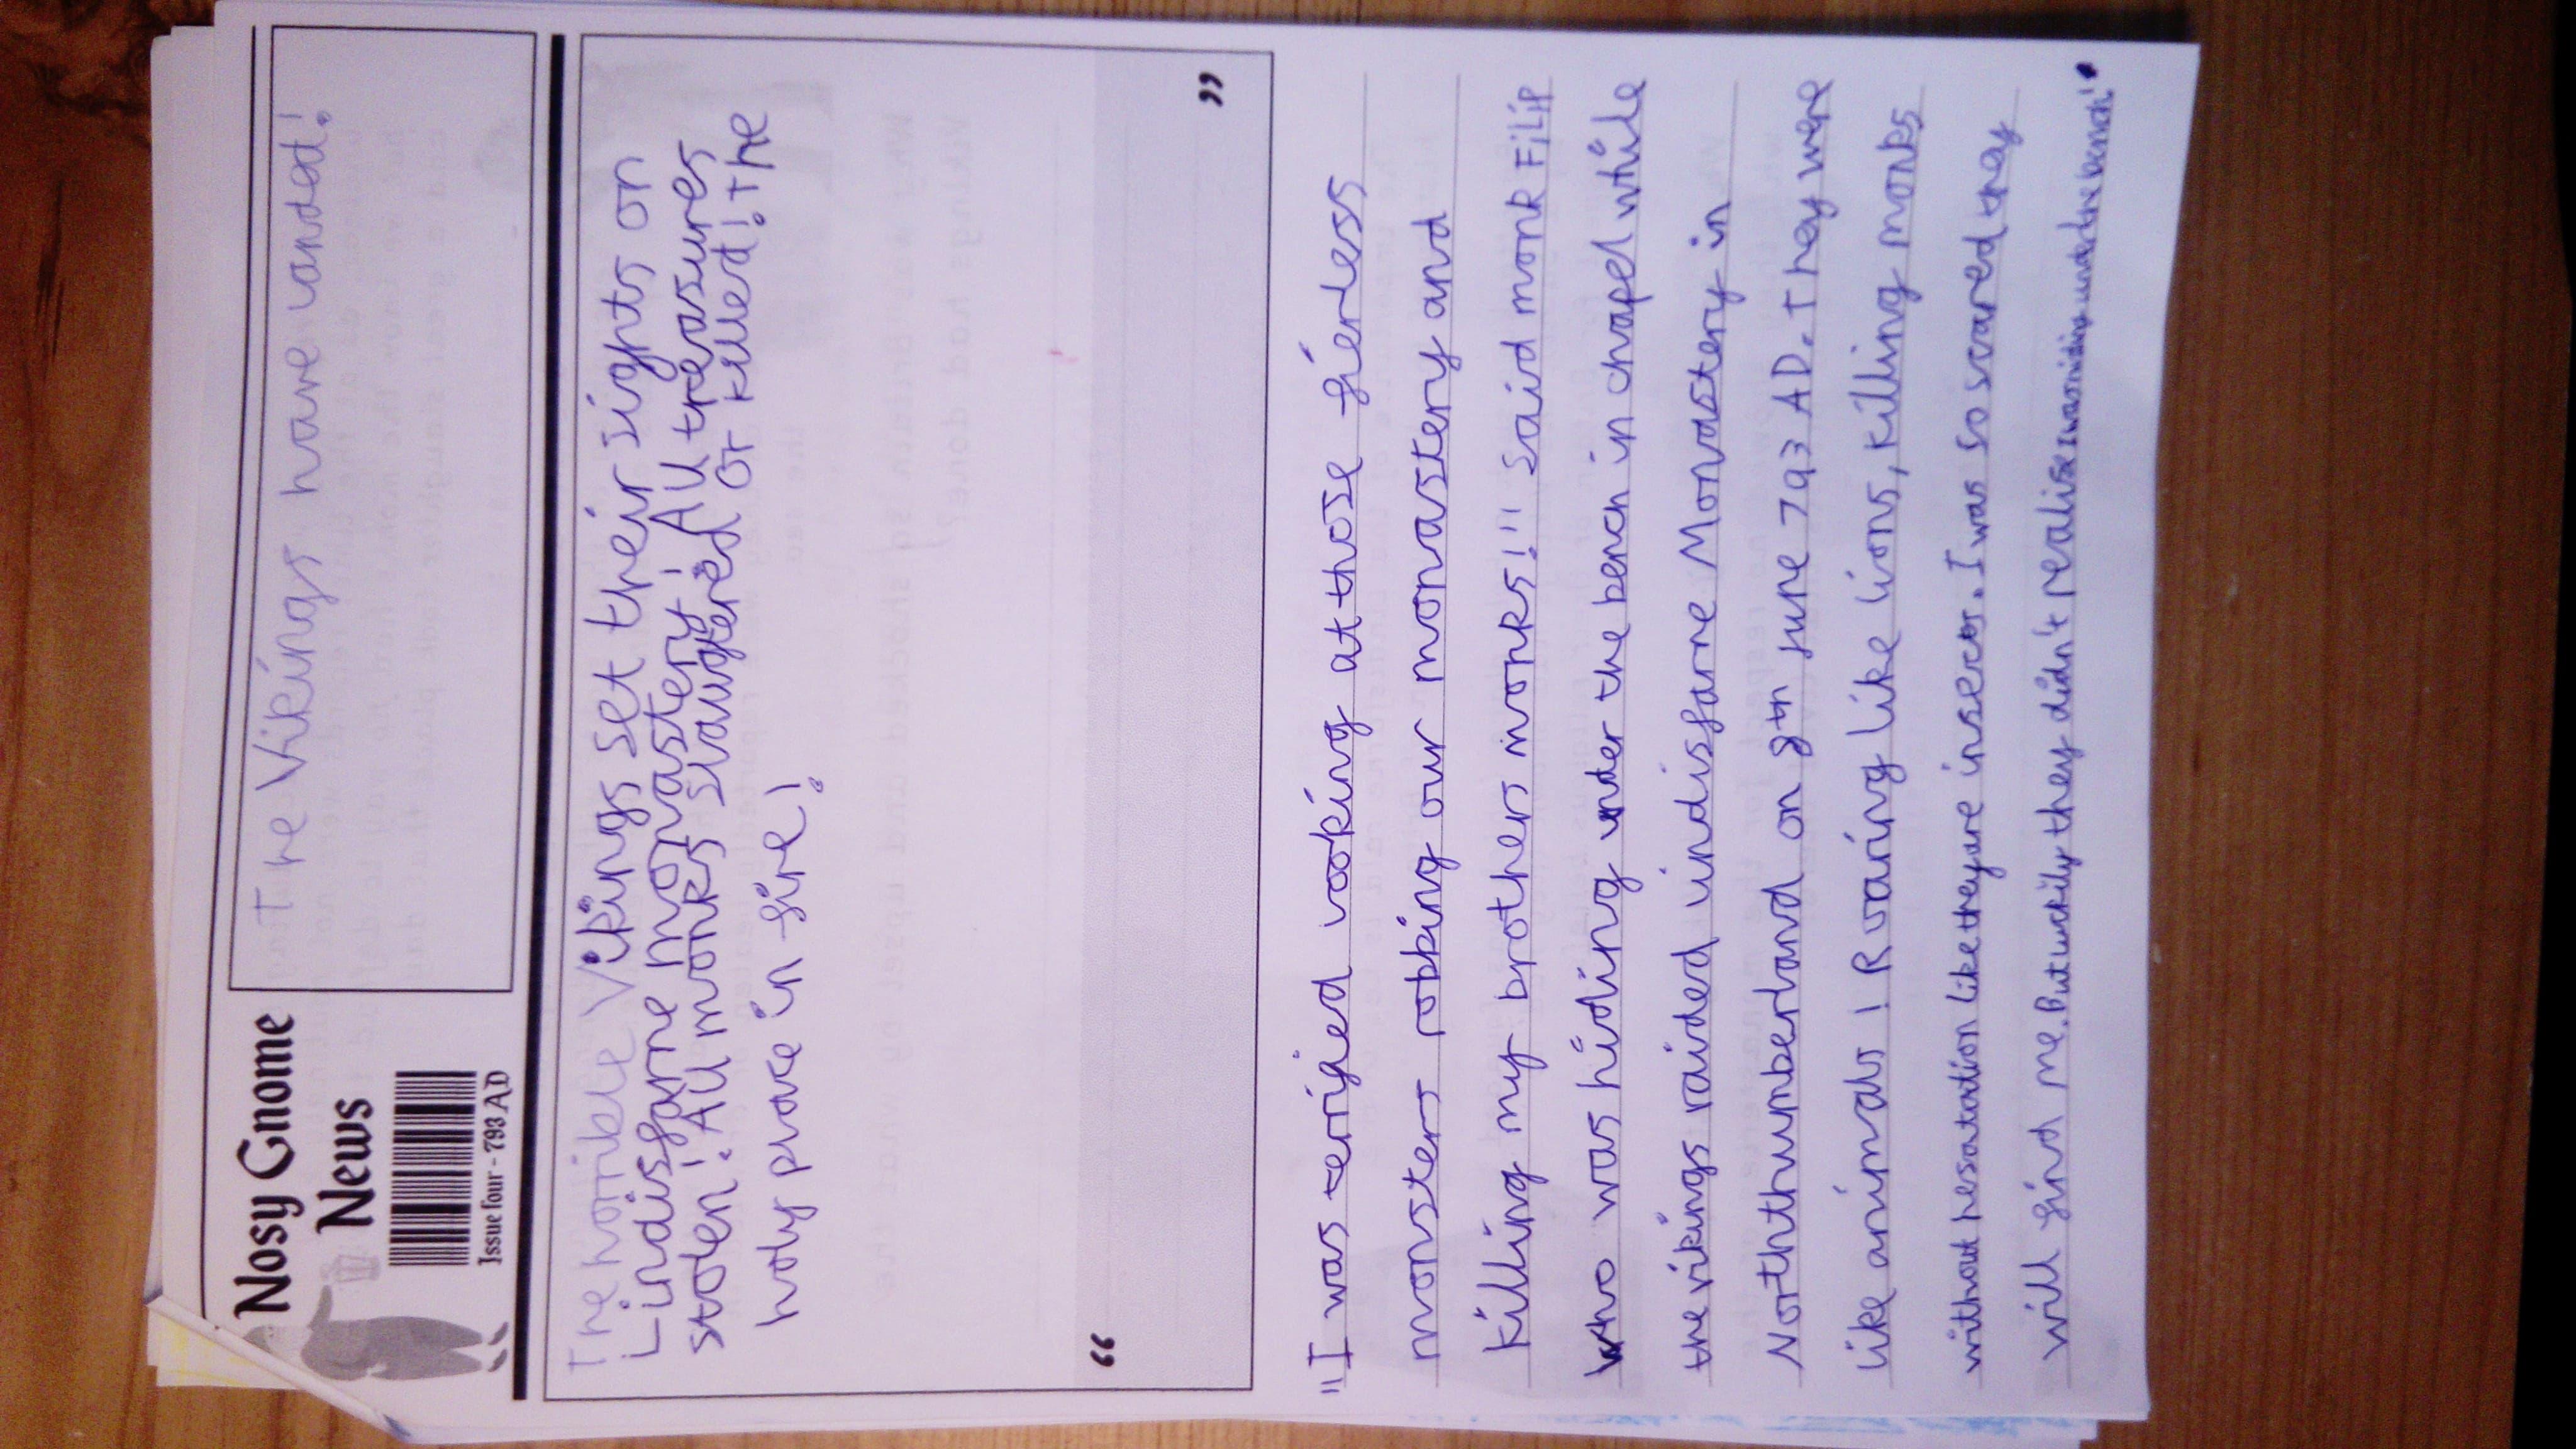 Nosy Gnome
News
Issue four - 793 AD
The Vikings have landed!
The horrible Vikings set their sights on
Lindisfarne monastery! All treasures
stolen! All monks slaughtered or killed! The
holy place in fire!
“
”
"I was terrified looking at those fierless
monsters robbing our monastery and
killing my brothers monks!" said monk Filip
who was hiding under the bench in chapel while
the vikings raided lindisfarne Monastery in
Norththumberland on 8th june 793 AD. They were
like animals! Roaring like lions, killing monks
without hesatation like they are insects. I was so scared they
will find me. But luckily they didn't realise I was hiding under the bench".